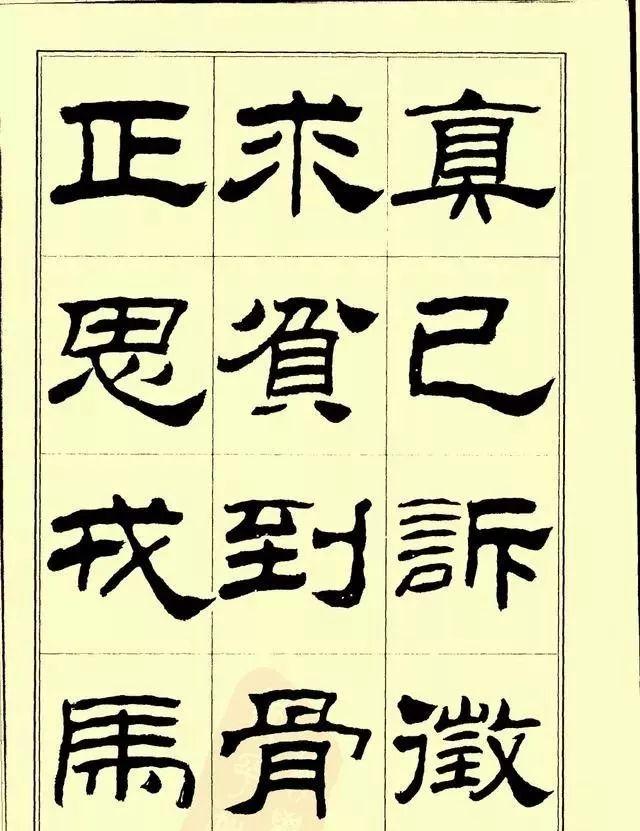 真已訴徵
求貧到骨
正思戎馬